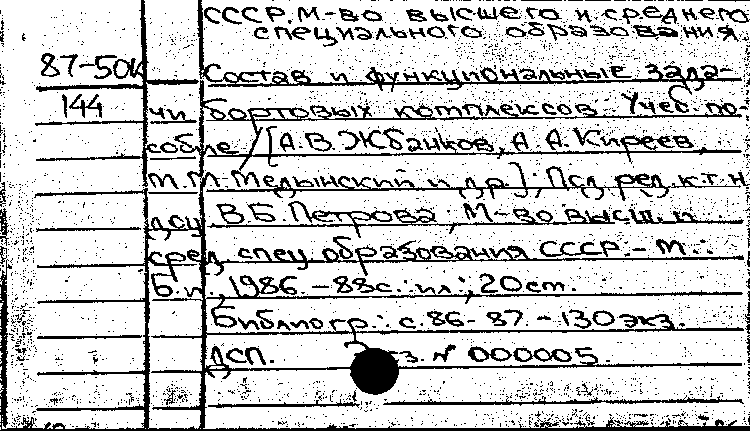 СССР. М-во высшего и среднего
специального образования
87-50к
Состав и функциональные зада-
144
чи бортовых комплексов: Учеб. по-
собие / [А.В. Жбанков, А.А. Киреев,
М.М. Медынский и др.]; Под ред. к.т.н.
доц. В.Б. Петрова; М-во высш. и
сред. спец. образования СССР. - М.:
Б.и., 1986. - 88с.: ил.; 20см.
Библиогр.: с. 86-87 - 130 экз.
ДСП. з. № 000005.